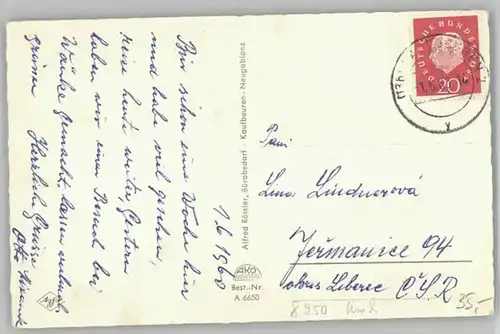 1/6 1960
Bin schon eine Woche hier
und habe viel gesehen,
reise heute weiter, Gestern
haben wir einen Besuch bei
Wänke gemacht, lassen
grüssen Herzliche Grüsse
Otto
Alfred Rössler, Bürobedarf - Kaufbeuren - Neugablonz
AKO
Best.-Nr.
A 6650
DEUTSCHE BUNDESPOST
20
Paní
Lina Lindnerová
Jeřmanice 94
okres Liberec Č.S.R
8950
35,-